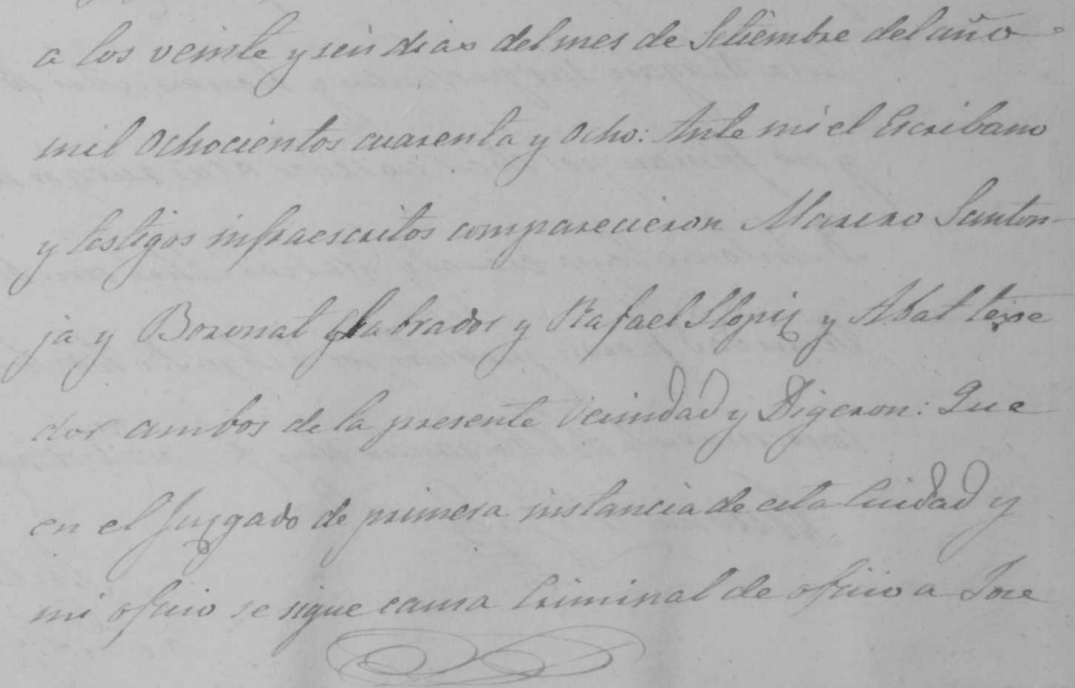 a los veinte y seis dias del mes de Setiembre del año
mil Ochocientos cuarenta y Ocho: Ante mi el Escribano
y testigos infraescritos comparecieron Mauro Santon-
ja y Boronat Labrador y Rafael Llopis y Abat teje
dor ambos de la presente Vecindad y Digeron: Que
en el Juzgado de primera instancia de esta Ciudad y
mi oficio se sigue causa Criminal de oficio a Jose